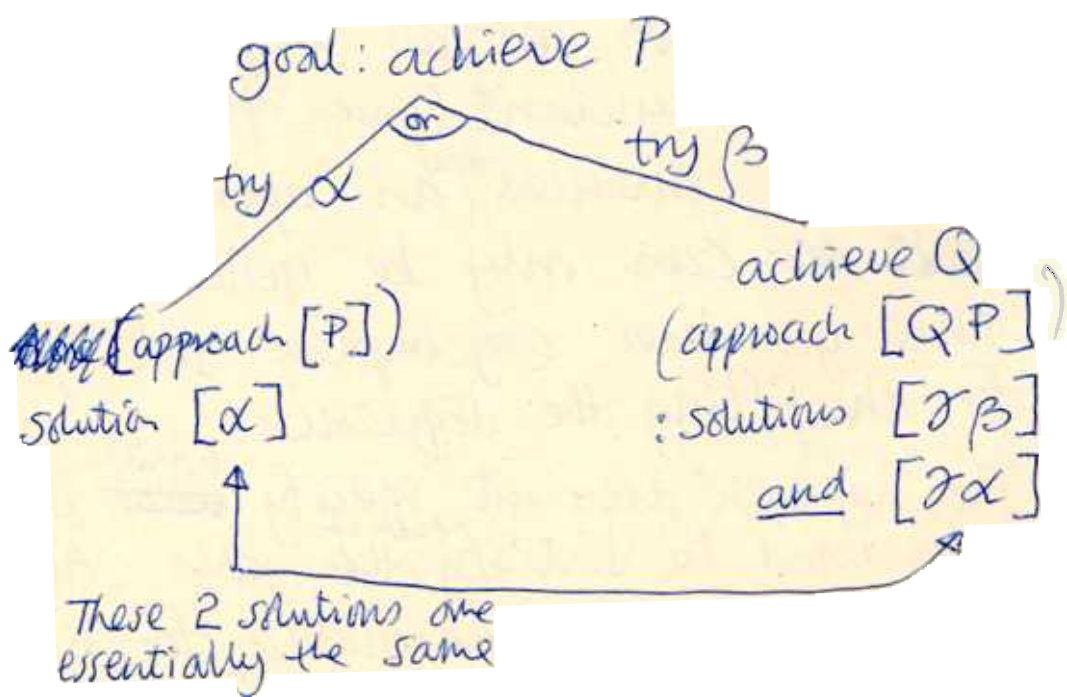 goal: achieve P
or
try α
try β
achieve Q
(approach [P])
(approach [QP])
solution [α]
: solutions [γβ]
and [γα]
These 2 solutions are
essentially the same